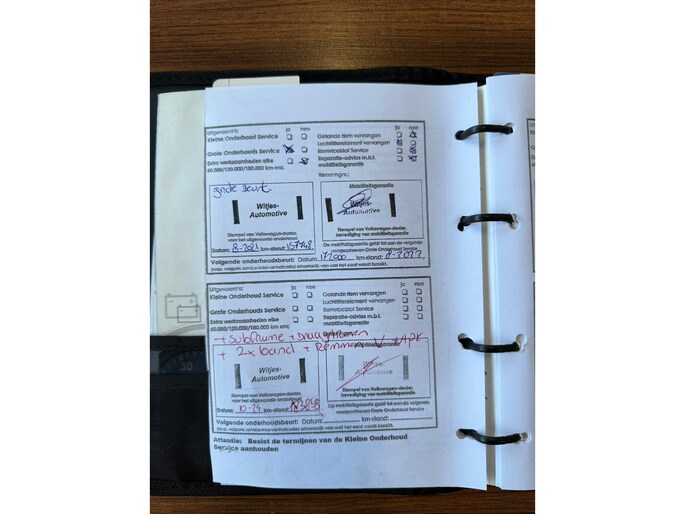 Uitgevoerd is: ja nee ja nee
Kleine Onderhoud Service Getande riem vervangen
Grote Onderhoud Service Luchtfilterelement vervangen
Extra werkzaamheden elke Remvloeistof Service
60.000/120.000/180.000 km enz. Reparatie-advies m.b.t.
mobiliteitsgarantie
grote beurt
Witjes-
Automotive
Stempel van Volkswagen-dealer,
voor het uitgevoerde onderhoud
Datum: 8-2021 km-stand: 157748
Mobiliteitsgarantie
Witjes-
Automotive
Stempel van Volkswagen-dealer,
bevestiging van mobiliteitsgarantie
De mobiliteitsgarantie geldt tot aan de volgende
voorgeschreven Grote Onderhoud Service
Volgende onderhoudsbeurt: Datum: 172000 km-stand:
Uitgevoerd is: ja nee ja nee
Kleine Onderhoud Service Getande riem vervangen
Grote Onderhoud Service Luchtfilterelement vervangen
Extra werkzaamheden elke Remvloeistof Service
60.000/120.000/180.000 km enz. Reparatie-advies m.b.t.
+ subframe +
+ 2x band + Remmen V + APK
Witjes-
Automotive
Stempel van Volkswagen-dealer,
voor het uitgevoerde onderhoud
Datum: 10-24 km-stand:
Automotive
Stempel van Volkswagen-dealer,
bevestiging van mobiliteitsgarantie
De mobiliteitsgarantie geldt tot aan de volgende
voorgeschreven Grote Onderhoud Service
Volgende onderhoudsbeurt: Datum: km-stand:
Attentie: Beslist de termijnen van de Kleine Onderhoud
Service aanhouden